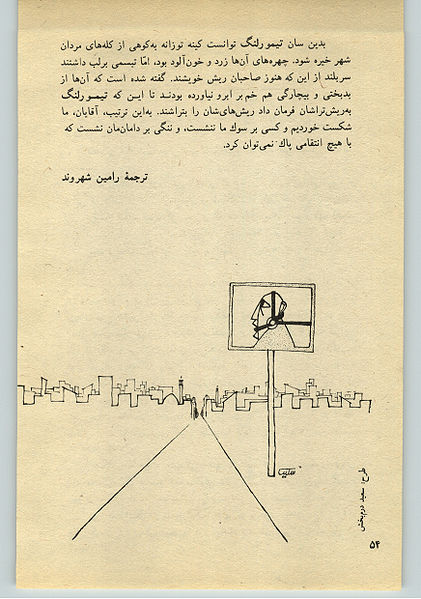 بدین سان تیمورلنگ توانست کینه توزانه به‌کوهی از کله‌های مردان
شهر خیره شود. چهره‌های آن‌ها زرد و خون‌آلود بود، امّا تبسمی برلب داشتند
سربلند از این که هنوز صاحبان ریش خویشند. گفته شده است که آن‌ها از
بدبختی و بیچارگی هم خم بر ابرو نیاورده بودند تا این که تیمورلنگ
به‌ریش‌تراشان فرمان داد ریش‌های‌شان را بتراشند. به‌این ترتیب، آقایان، ما
شکست خوردیم و کسی بر سوك ما ننشست، و ننگی بر دامان‌مان نشست که
با هیچ انتقامی پاك نمی‌توان کرد.
ترجمهٔ رامین شهروند
طرح: سعید درم‌بخش
۵۴